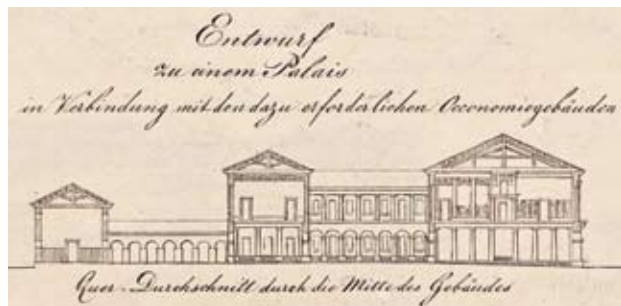 Entwurf
zu einem Palais
in Verbindung mit den dazu erforderlichen Oeconomiegebäuden
Quer-Durchschnitt durch die Mitte des Gebäudes